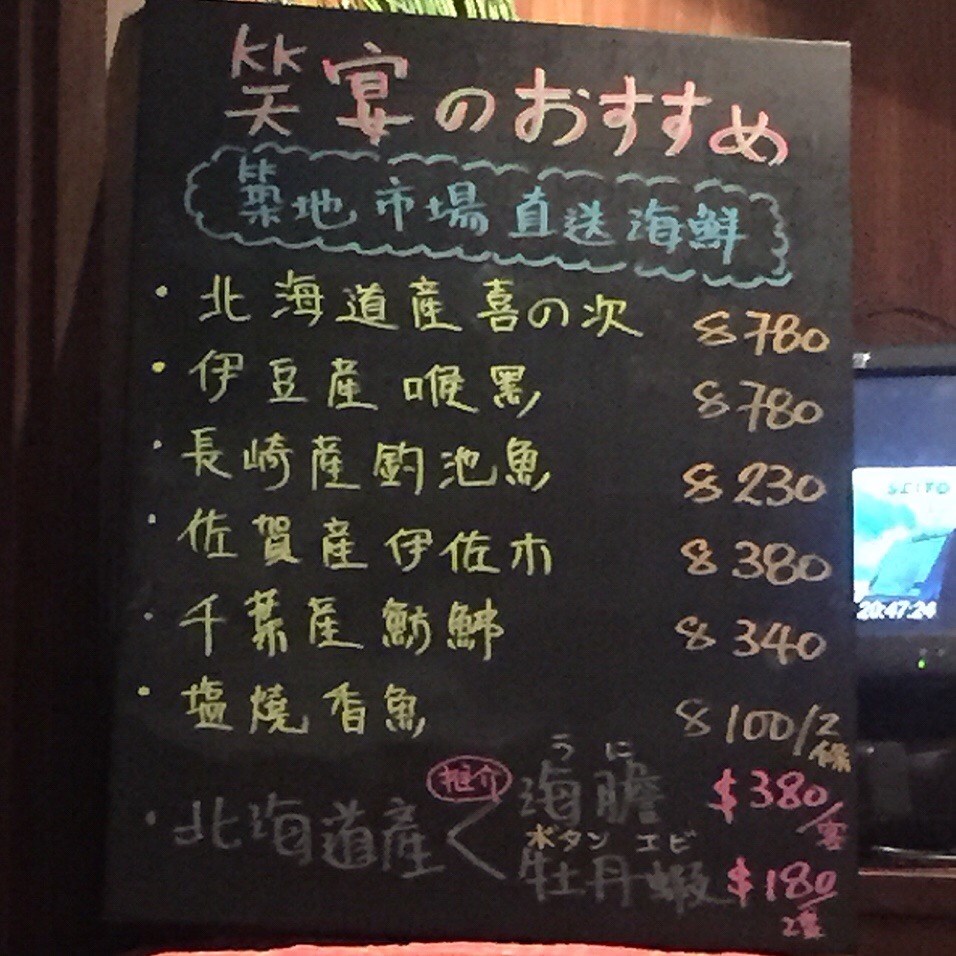 笑宴のおすすめ
築地市場直送海鮮
・北海道産喜の次 $780
・伊豆産喉黒 $780
・長崎産釣池魚 $230
・佐賀産伊佐木 $380
・千葉産魴鮄 $340
・塩焼香魚 $100/2條
うに
推介 海膽 $380/
・北海道産
ボタンエビ
牡丹蝦 $180/2隻
SEIKO
20:47:24